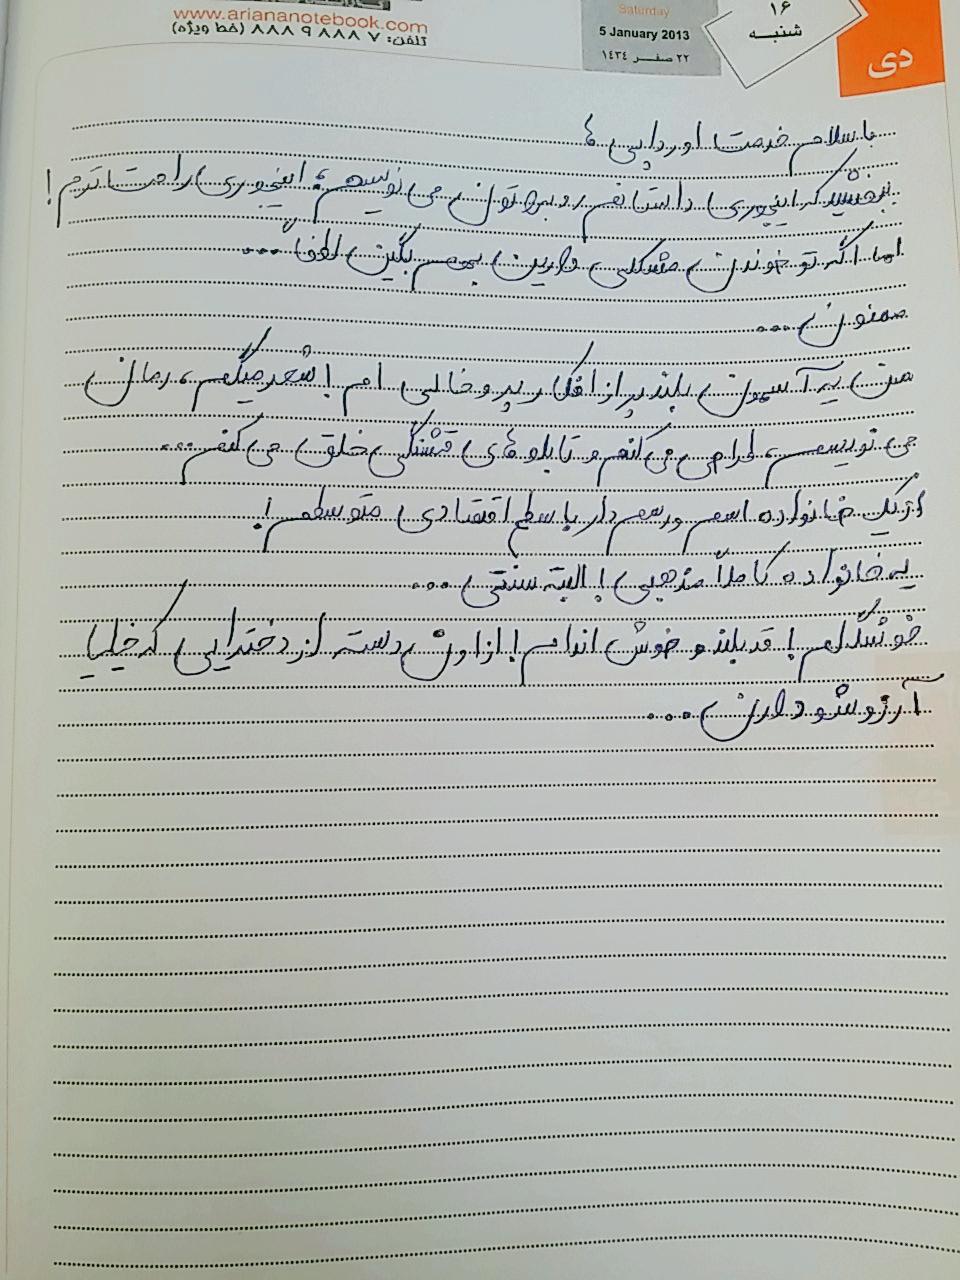 www.ariananotebook.com
تلفن: ۸۸۸۹۸۸۸۷ (خط ویژه)
Saturday
5 January 2013
۲۲ صفر ۱۴۳۴
۱۶
شنبه
دی
با سلام خدمت اوردایی ها
ببخشید که اینجوری داستانم رو براتون می نویسم، اینجوری راحت ترم!
اما اگه تو خوندن مشکلی دارین بهم بگین لطفاً ...
ممنون ...
من یه آسمون بلند پر از افکار پر و خالی ام! شعر میگم، رمان
می نویسم، طراحی می کنم و تابلوهای قشنگی خلق می کنم ...
از یک خانواده اسم و رسم دار با سطح اقتصادی متوسطم!
یه خانواده کاملاً مذهبی! البته سنتی ...
خوشگلم! قد بلند و خوش اندام! از اون دسته از دخترایی که خیلیا
آرزوشو دارن ...